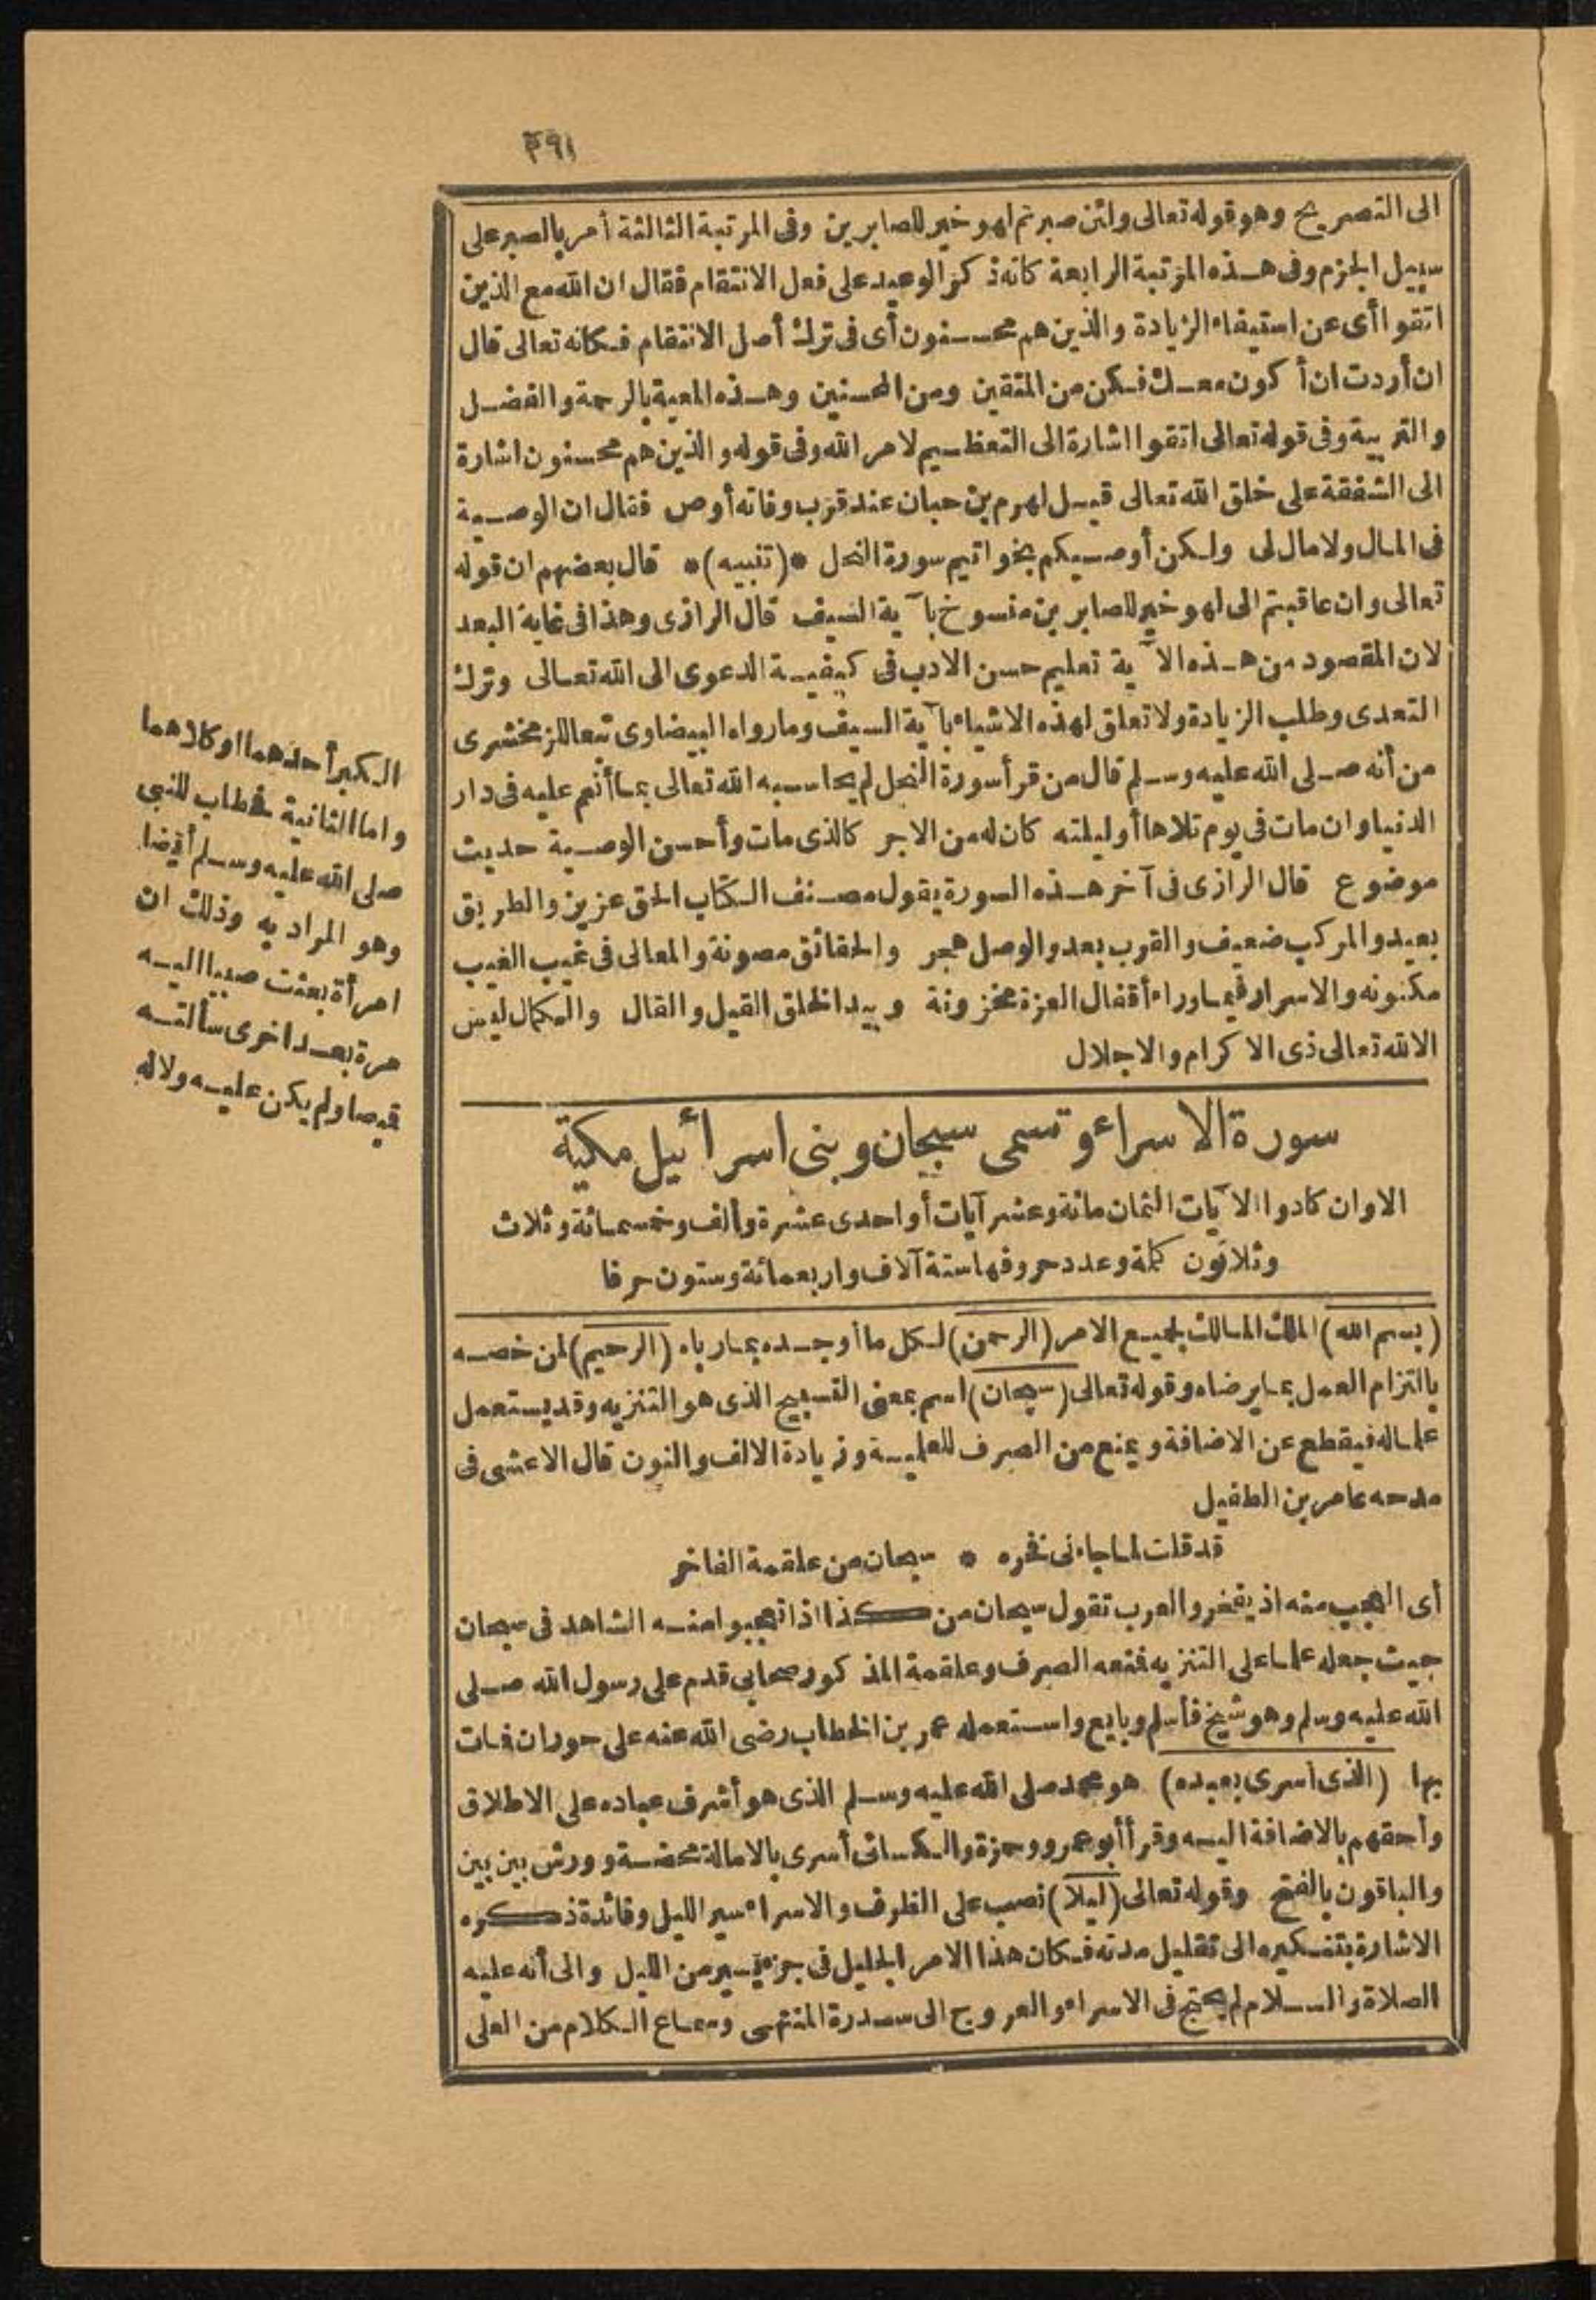 ٢٩١
الى التصريح وهو قوله تعالى ولئن صبرتم لهو خير للصابرين وفى المرتبة الثالثة أمر بالصبر على
سبيل الجزم وفى هذه المرتبة الرابعة كانه ذكر الوعيد على فعل الانتقام فقال ان الله مع الذين
اتقوا أى عن استيفاء الزيادة والذين هم محسنون أى فى ترك أصل الانتقام فكانه تعالى قال
ان أردت ان أكون معك فكن من المتقين ومن المحسنين وهذه المعية بالرحمة والفضل
والتربية وفى قوله تعالى اتقوا اشارة الى التعظيم لامر الله وفى قوله والذين هم محسنون اشارة
الى الشفقة على خلق الله تعالى قيل لهرم بن حبان عند قرب وفاته أوص فقال ان الوصية
فى المال ولا مال لى ولكن أوصيكم بخواتيم سورة النحل *(تنبيه)* قال بعضهم ان قوله
تعالى وان عاقبتم الى لهو خير للصابرين منسوخ بآية السيف قال الرازى وهذا فى غاية البعد
لان المقصود من هذه الآية تعليم حسن الادب فى كيفية الدعوى الى الله تعالى وترك
التعدى وطلب الزيادة ولا تعلق لهذه الاشياء بآية السيف وما رواه البيضاوى تبعا للزمخشرى
من أنه صلى الله عليه وسلم قال من قرأ سورة النحل لم يحاسبه الله تعالى بما أنعم عليه فى دار
الدنيا وان مات فى يوم تلاها أو ليلته كان له من الاجر كالذى مات وأحسن الوصية حديث
موضوع قال الرازى فى آخر هذه السورة يقول مصنف الكتاب الحق عزيز والطريق
بعيد والمركب ضعيف والقرب بعد والوصل هجر والحقائق مصونة والمعالى فى غيب الغيب
مكنونه والاسرار فيما وراء أقفال العزة مخزونة وبيد الخلق القيل والقال والكمال ليس
الا لله تعالى ذى الاكرام والاجلال
سورة الاسراء وتسمى سبحان وبنى اسرائيل مكية
الا وان كادوا الآيات الثمان مائة وعشر آيات أو احدى عشرة وألف وخمسمائة وثلاث
وثلاثون كلمة وعدد حروفها ستة آلاف واربعمائة وستون حرفا
(بسم الله) الملك المالك لجميع الامر (الرحمن) لكل ما أوجده بما رباه (الرحيم) لمن خصه
بالتزام العمل بما يرضاه وقوله تعالى (سبحان) اسم بمعنى التسبيح الذى هو التنزيه وقد يستعمل
علما له فيقطع عن الاضافة ويمنع من الصرف للعلمية وزيادة الالف والنون قال الاعشى فى
مدحه عامر بن الطفيل
قد قلت لما جاءنى فخره * سبحان من علقمة الفاخر
أى العجب منه اذ يفخر والعرب تقول سبحان من كذا اذا تعجبوا منه الشاهد فى سبحان
حيث جعله علما على التنزيه فمنعه الصرف وعلقمة المذكور صحابى قدم على رسول الله صلى
الله عليه وسلم وهو شيخ فأسلم وبايع واستعمله عمر بن الخطاب رضى الله عنه على حوران فمات
بها (الذى أسرى بعبده) هو محمد صلى الله عليه وسلم الذى هو أشرف عباده على الاطلاق
وأحقهم بالاضافة اليه وقرأ أبو عمرو وحمزة والكسائى أسرى بالامالة محضة وورش بين بين
والباقون بالفتح وقوله تعالى (ليلا) نصب على الظرف والاسراء سير الليل وفائدة ذكره
الاشارة بتنكيره الى تقليل مدته فكان هذا الامر الجليل فى جزء يسير من الليل والى أنه عليه
الصلاة والسلام لم يحتج فى الاسراء والعروج الى سدرة المنتهى وسماع الكلام من العلى
الكبر أحدهما او كلاهما
واما الثانية فخطاب للنبى
صلى الله عليه وسلم أيضا
وهو المراد به وذلك ان
امرأة بعثت صبيا اليه
مرة بعد اخرى سألته
قميصا ولم يكن عليه ولا له